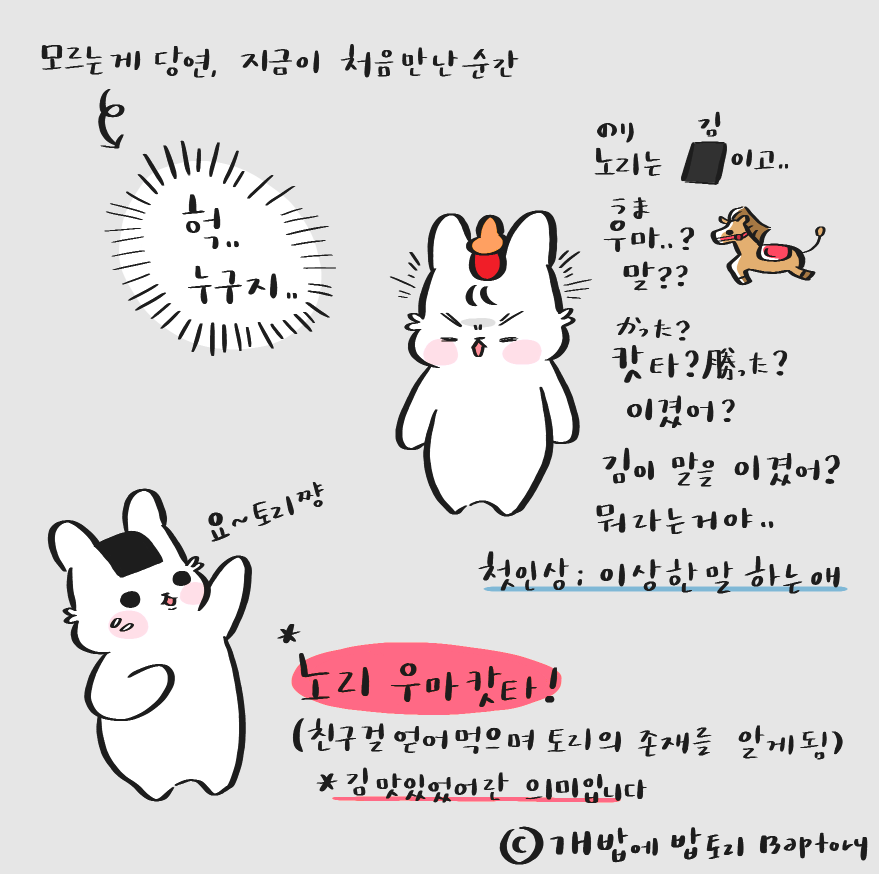 모르는게 당연, 지금이 처음만난순간
헉..
누구지..
のり 김
노리는 이고..
うま
우마..?
말??
かった?
캇타?勝った?
이겼어?
김이 말을 이겼어?
뭐라는거야..
첫인상; 이상한말 하는애
요~토리짱
*
노리 우마캇타!
(친구걸 얻어먹으며 토리의 존재를 알게됨)
*김맛있었어란 의미입니다
©개밥에 밥토리 Baptory